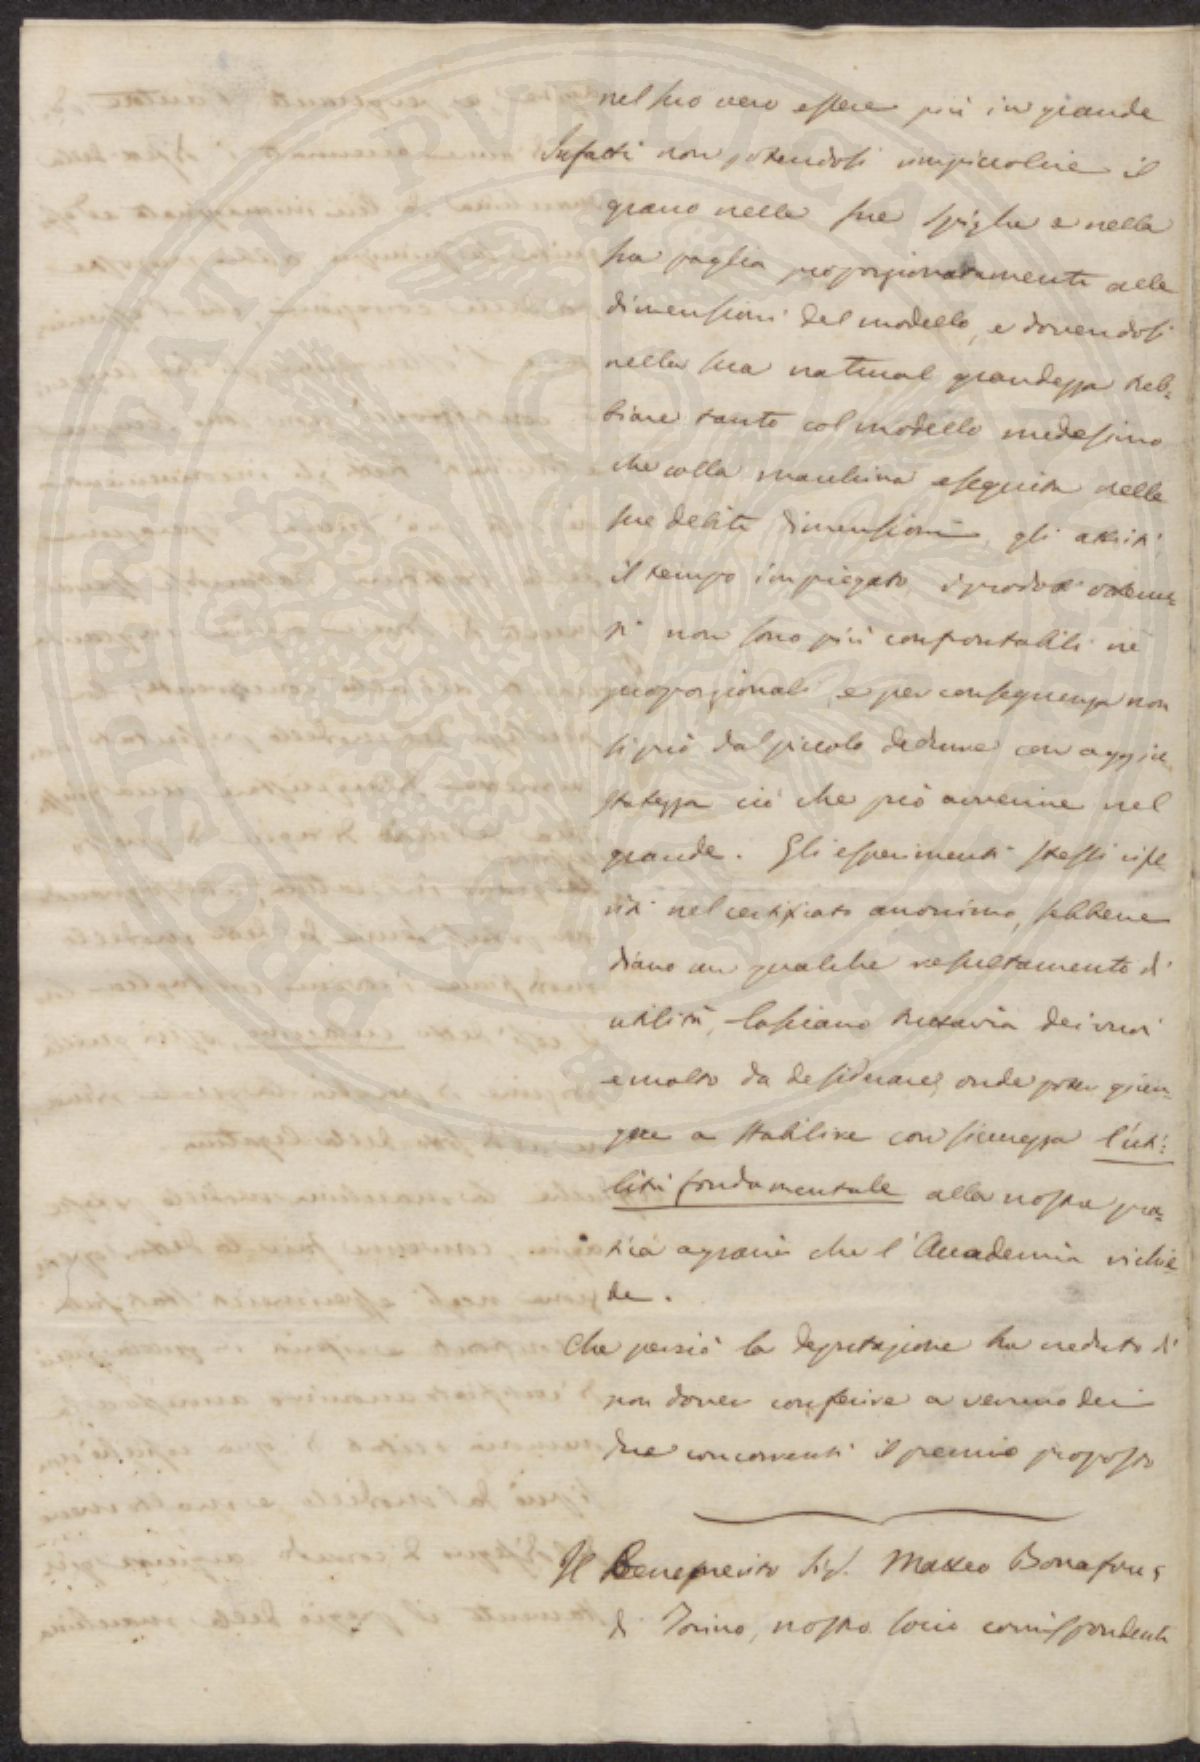 nel suo vero essere più in grande
Infatti non potendosi impiccolire il
grano nelle sue spighe e nella
sua paglia proporzionatamente alle
dimensioni del modello, e dovendosi
nella sua natural grandezza treb=
biare tanto col modello medesimo
che colla macchina eseguita nelle
sue debite dimensioni, gli attriti
il tempo impiegato, i prodotti ottenu=
ti non sono più confrontabili nè
proporzionali, e per conseguenza non
si può dal piccolo dedurre con aggiu
statezza ciò che può avvenire nel
grande. Gli esperimenti stessi rife
riti nel certificato anonimo, sebbene
diano un qualche resultamento di
utilità, lasciano tuttavia dei vuoti
e molto da desiderare, onde poter giun=
gere a stabilire con sicurezza l'uti=
lità fondamentale alla nostra pra=
tica agraria che l'Accademia richie=
de.
Che perciò la deputazione ha creduto di
non dover conferire a veruno dei
due concorrenti il premio proposto
Il Benemerito Sig. Matteo Bonafous
di Torino, nostro socio corrispondente
PROSPERITATI PVBLICAE